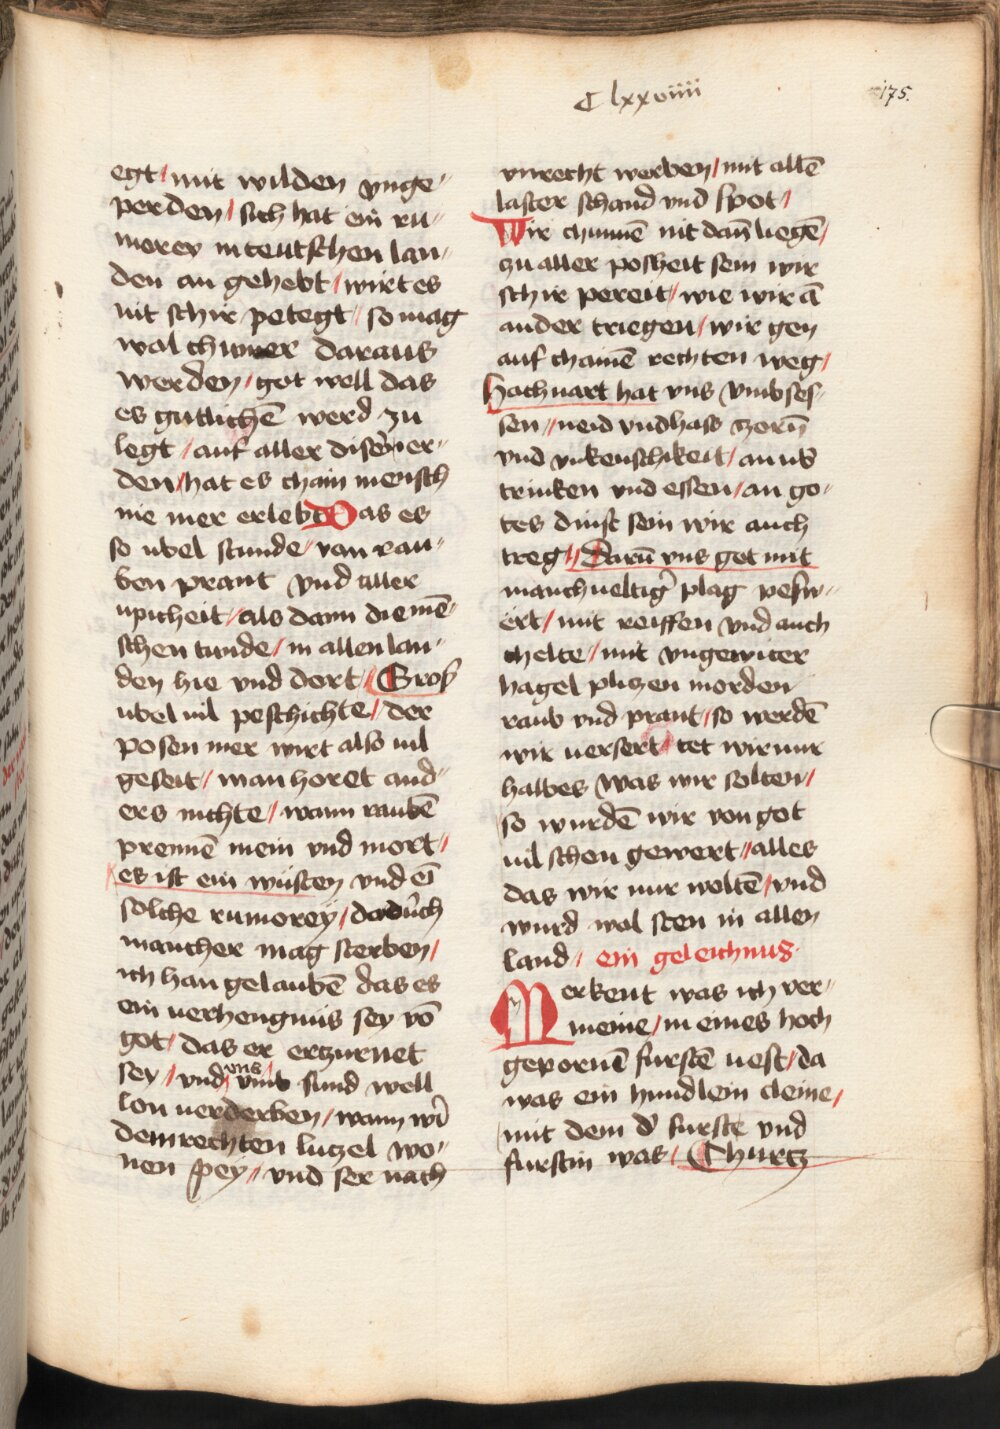 Clxxviiii
175.
egt / mit wilden vnge⸗
perden / sich hat ein ru⸗
morey in teutschen lan⸗
den an gehebt / wirt es
nit schir petegt / so mag
wal chumer daraus
werden / got well das
es gutlichē werd zu
legt / auf aller diser er⸗
den / hat es chain mensch
nie mer erlebt Das es
so vbel stunde / van rau⸗
ben prant vnd aller
upicheit / als dann die mē⸗
schen tunde / in allen lan⸗
den hie vnd dort / Gros
ubel uil peschichte / der
posen mer wirt also uil
geseit / man horet and⸗
ers nichte / wann raubē
prennē mein vnd mort /
es ist ein wusten vnd eī
solche rumorey / dadurch
mancher mag sterben /
ich han gelaubē das es
ein uerhengnus sey vō
got / das er erzurnet
sey / vnd vns vmb sund well
lon uerderben / wann wir
dem rechten luzel wo⸗
nen pey / vnd ser nach
vnrecht werben / mit allē
laster schand vnd spot /
Wir chunnē nit dan liegē /
zu aller posheit sein wir
schir pereit / wie wir ā
ander triegen / wir gen
auf chainē rechten weg /
Hachuart hat vns vmbses⸗
sen / neid vnd hass zorn
vnd vnkeuschikeit / an
trinken vnd essen / an go⸗
tes dinst sein wir auch
treg / Darū vns got mit
manchueltiger plag pesw⸗
ert / mit reiffen vnd auch
chelte / mit vngewiter
hagel plizen morden
raub vnd prant / so werdē
wir uersert / tet wir nur
halbes was wir solten /
so wurdē wir von got
uil schen gewert / alles
das wir nur woltē / vnd
wurd wol sten in allen
land / ein geleichnus
Merkent was ich ver⸗
meine / in eines hoch
geparnē furstē uest / da
was ein hundlein cleine /
mit dem d' furste vnd
furstin was / Churtz